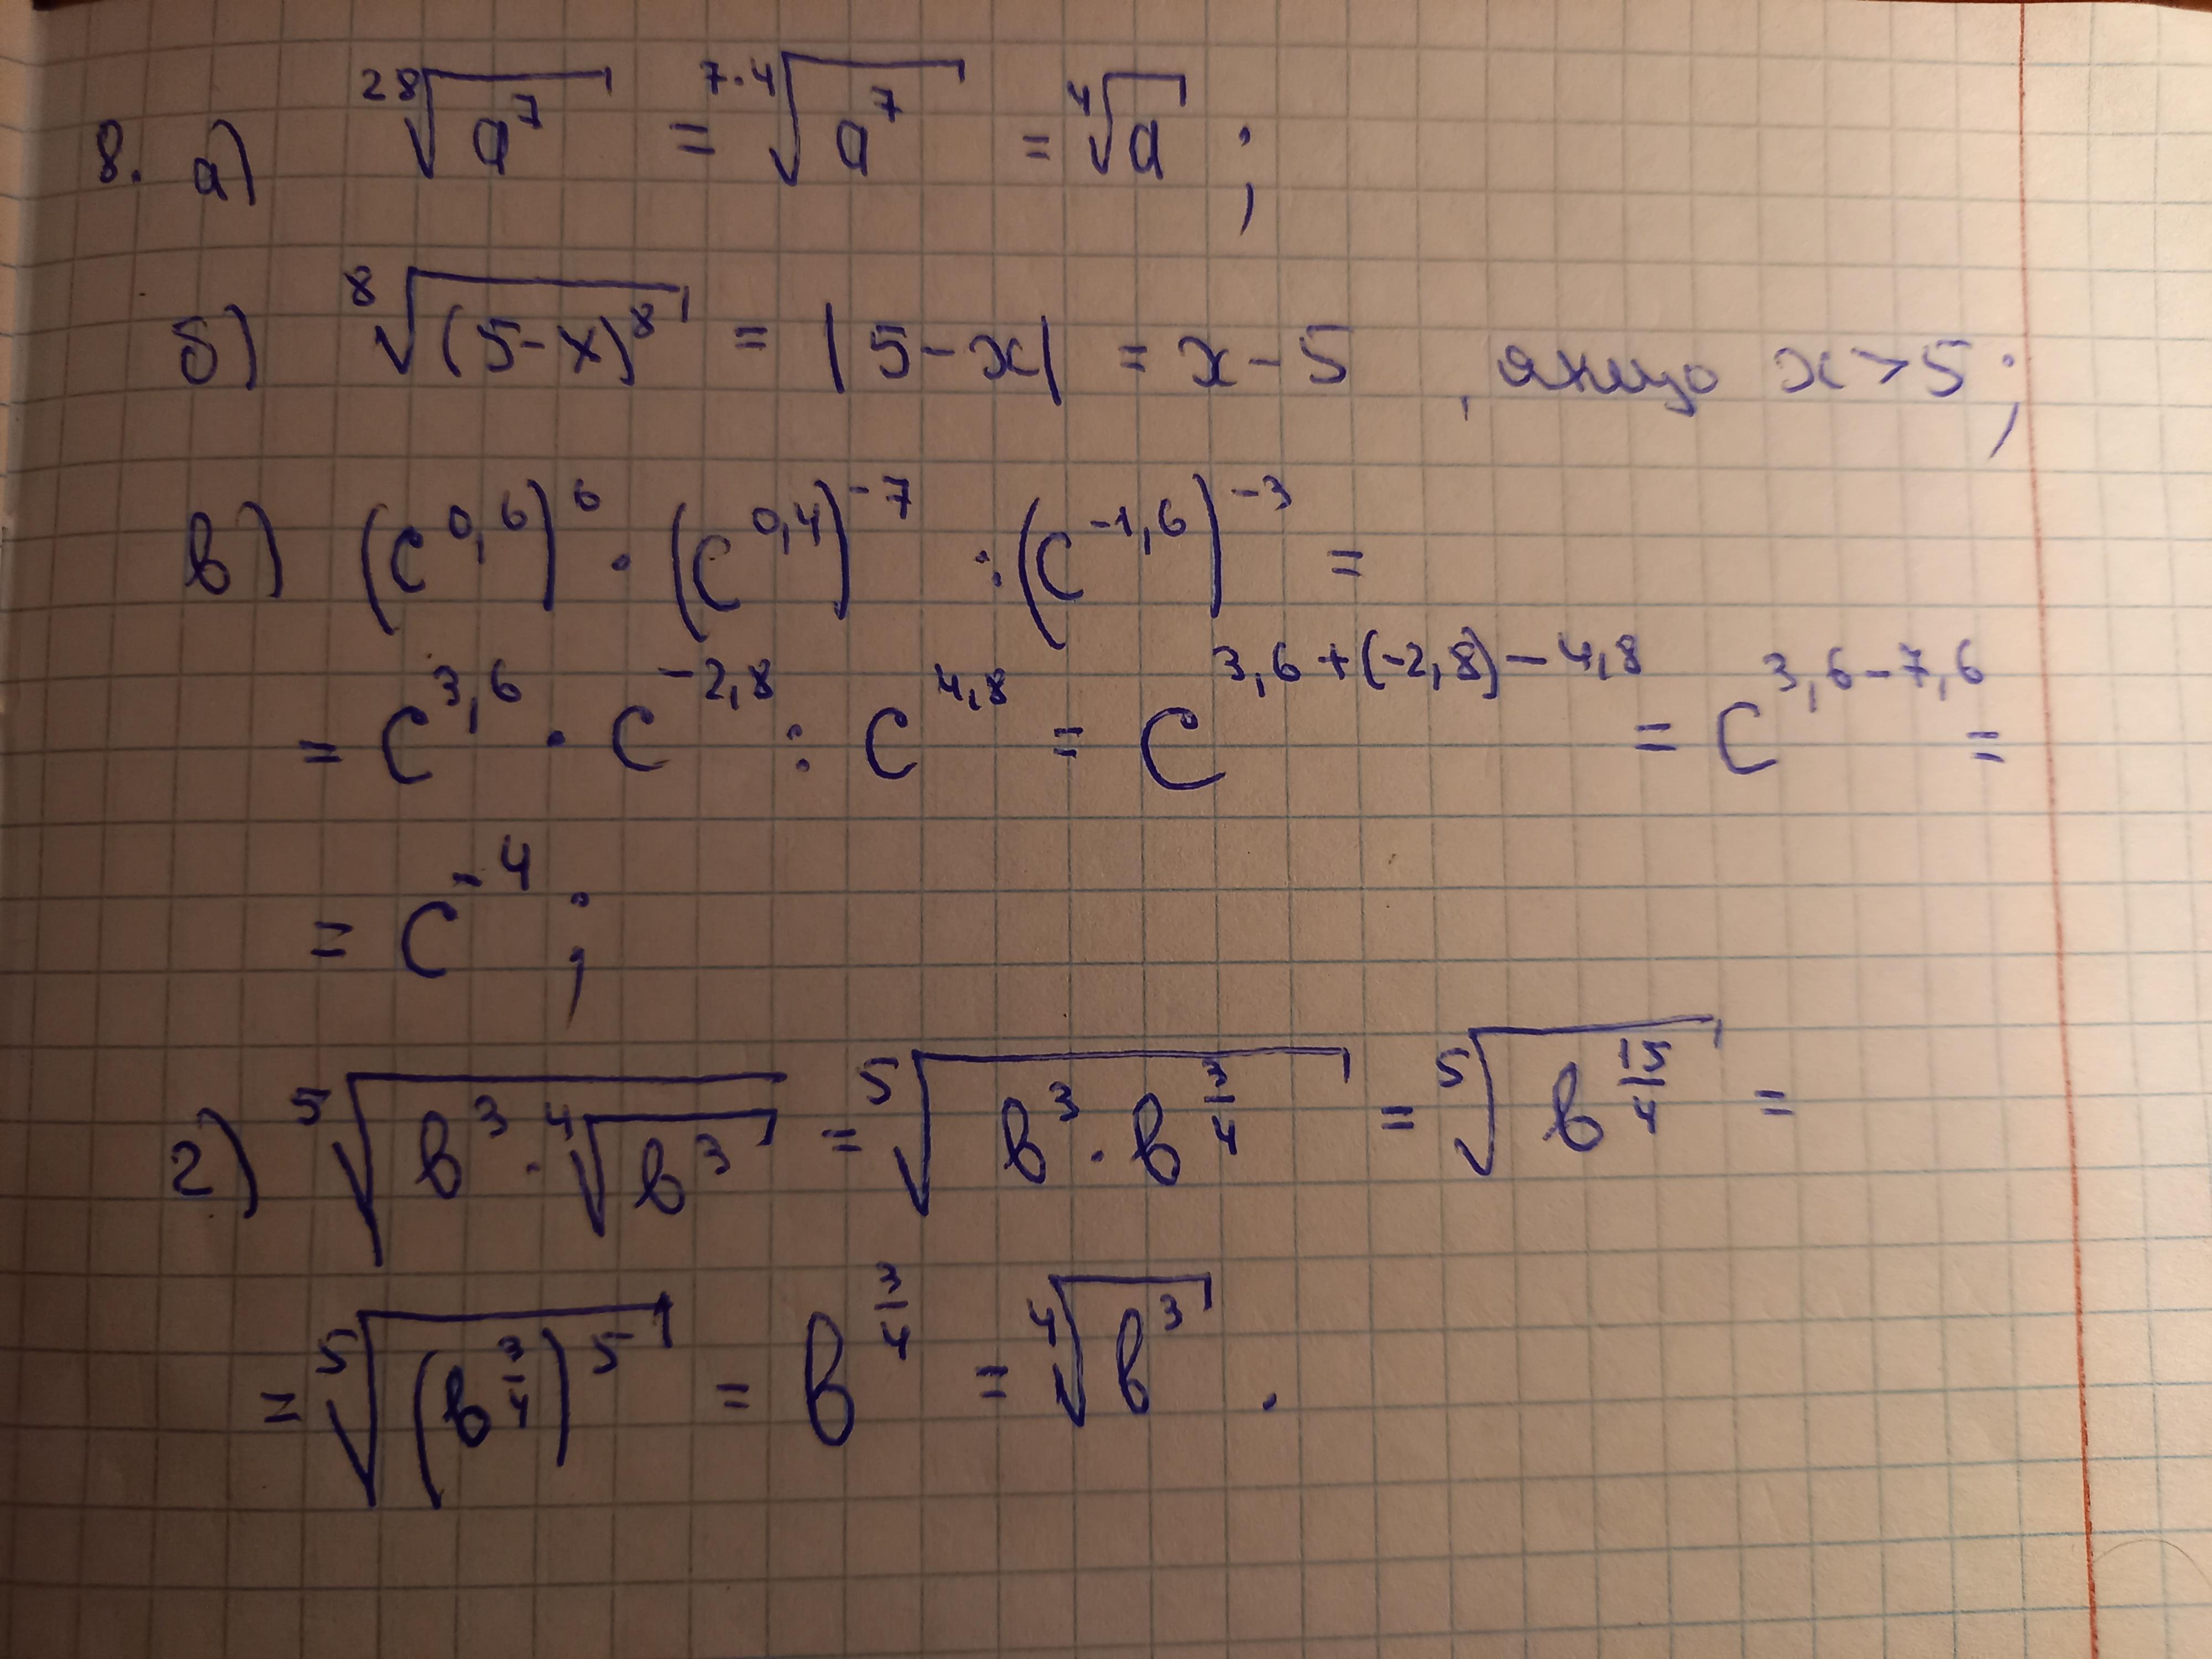 8. а) ²⁸√(a⁷) = ⁷·⁴√(a⁷) = ⁴√a ;
б) ⁸√((5-x)⁸) = |5-x| = x-5 , якщо x>5;
в) (c^0,6)^6 · (c^0,4)^-7 : (c^-1,6)^-3 =
= c^3,6 · c^-2,8 : c^4,8 = c^3,6+(-2,8)-4,8 = c^3,6-7,6 =
= c^-4 ;
г) ⁵√(b³·⁴√(b³)) = ⁵√(b³·b^3/4) = ⁵√(b^15/4) =
= ⁵√((b^3/4)⁵) = b^3/4 = ⁴√(b³) .